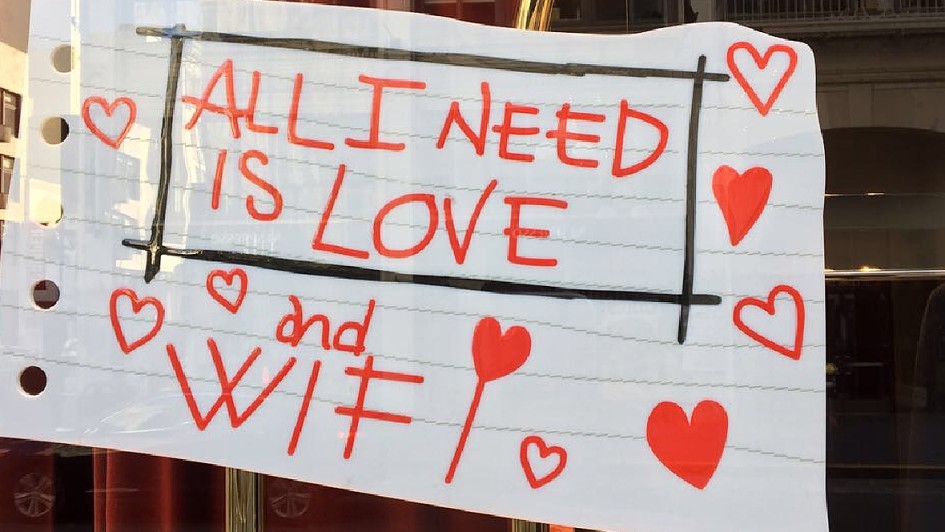 ALL I NEED
IS LOVE
and
WIFI